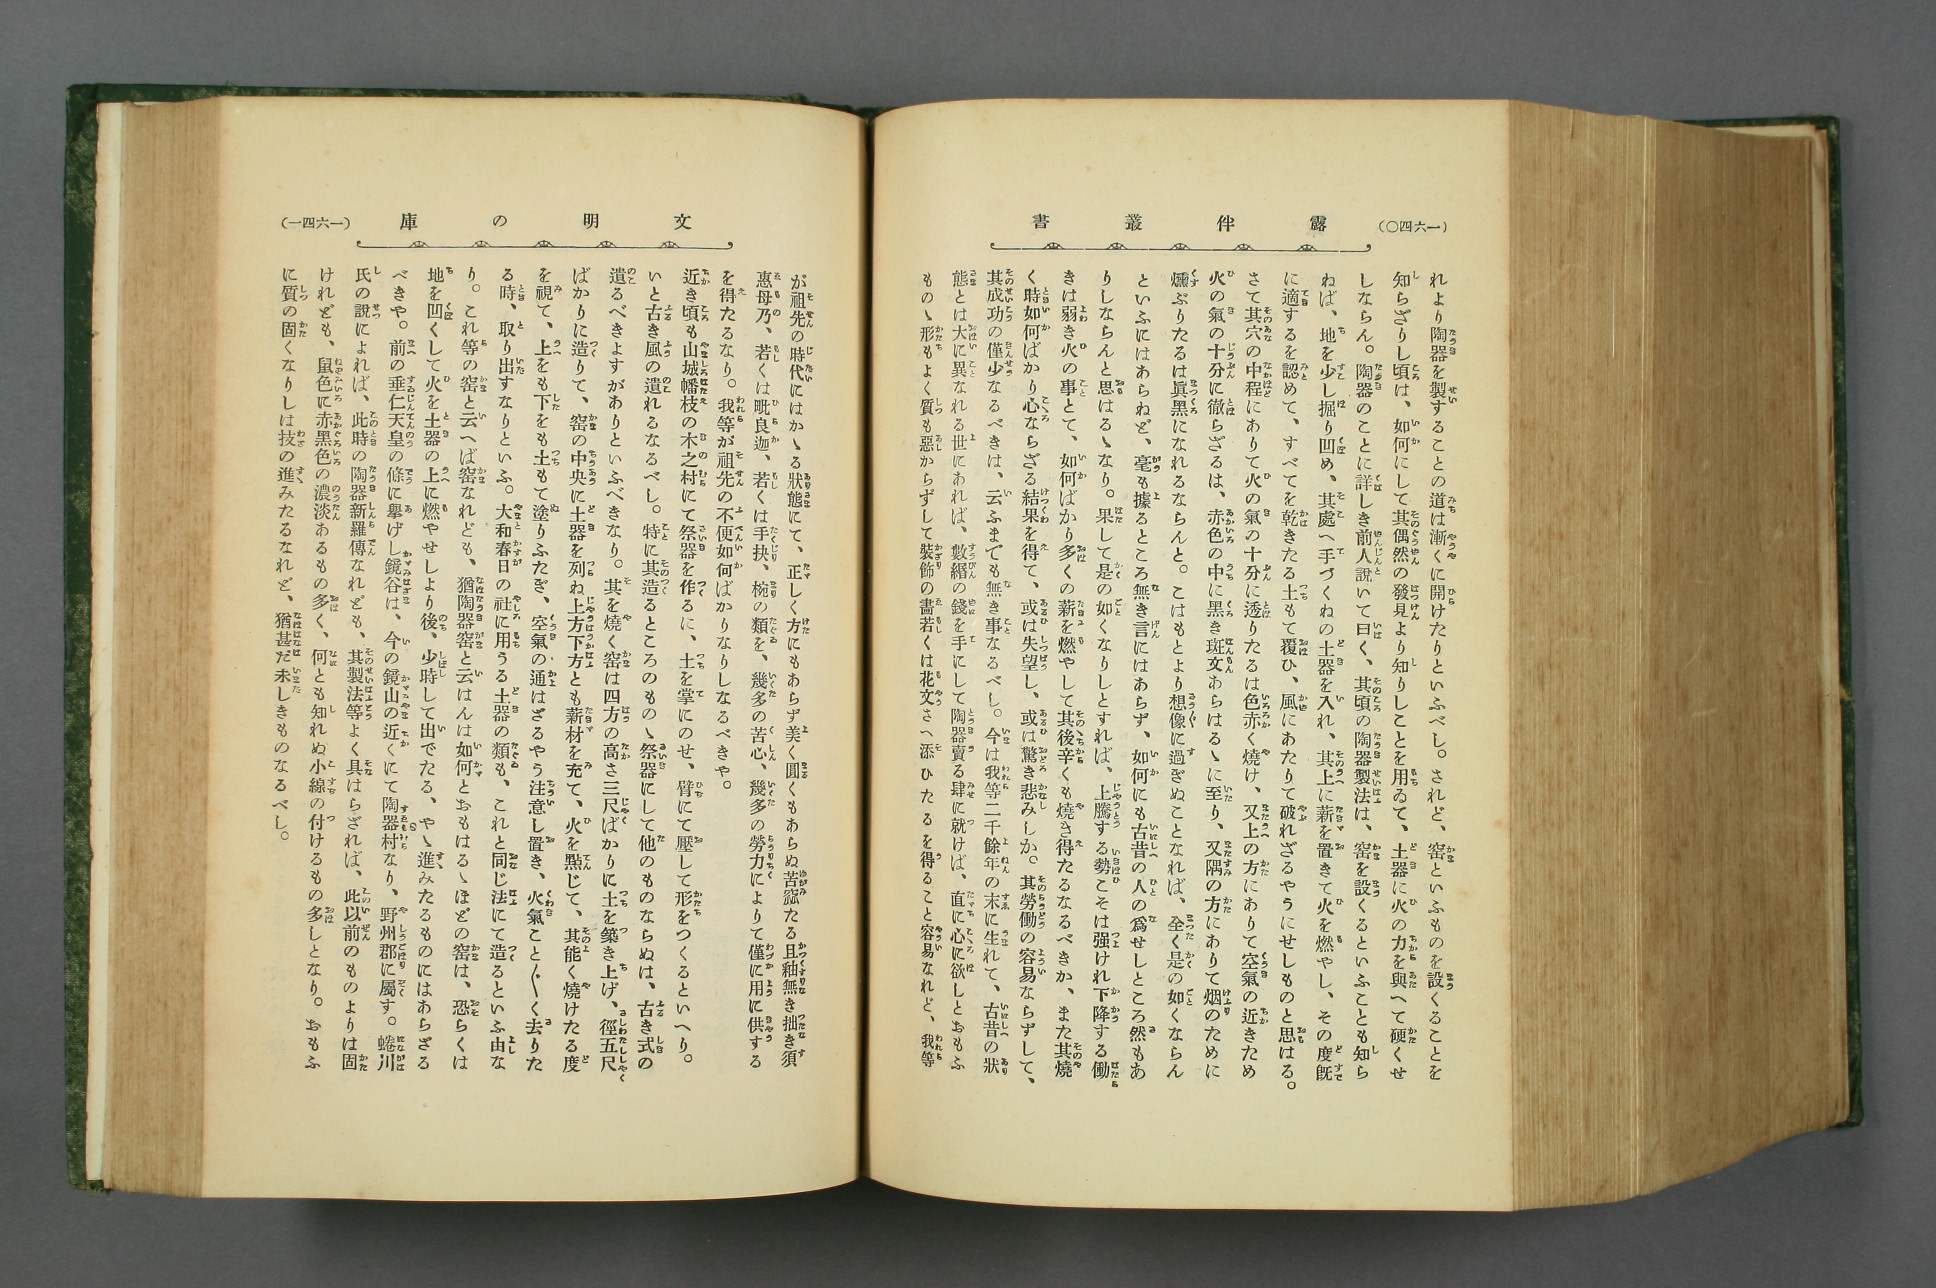 (一六四〇)
露伴叢書
れより陶器を製することの道は漸くに開けたりといふべし。されど、窑といふものを設くることを
知らざりし頃は、如何にして其偶然の發見より知りしことを用ゐて、土器に火の力を與へて硬くせ
しならん。陶器のことに詳しき前人說いて曰く、其頃の陶器製法は、窑を設くるといふことも知ら
ねば、地を少し掘り凹め、其處へ手づくねの土器を入れ、其上に薪を置きて火を燃やし、その度旣
に適するを認めて、すべてを乾きたる土もて覆ひ、風にあたりて破れざるやうにせしものと思はる。
さて其穴の中程にありて火の氣の十分に透りたるは色赤く燒け、又上の方にありて空氣の近きため
火の氣の十分に徹らざるは、赤色の中に黑き斑文あらはるゝに至り、又隅の方にありて烟のために
燻ぶりたるは眞黑になれるならんと。こはもとより想像に過ぎぬことなれば、全く是の如くならん
といふにはあらねど、毫も據るところ無き言にはあらず、如何にも古昔の人の爲せしところ然もあ
りしならんと思はるゝなり。果して是の如くなりしとすれば、上騰する勢こそは强けれ下降する働
きは弱き火の事とて、如何ばかり多くの薪を燃やして其後辛くも燒き得たるなるべきか、また其燒
く時如何ばかり心ならざる結果を得て、或は失望し、或は驚き悲みしか。其勞働の容易ならずして、
其成功の僅少なるべきは、云ふまでも無き事なるべし。今は我等二千餘年の末に生れて、古昔の狀
態とは大に異なれる世にあれば、數緡の錢を手にして陶器賣る肆に就けば、直に心に欲しとおもふ
ものゝ形もよく質も惡からずして裝飾の畵若くは花文さへ添ひたるを得ること容易なれど、我等
文明の庫
(一六四一)
が祖先の時代にはかゝる狀態にて、正しく方にもあらず美く圓くもあらぬ苦窳たる且釉無き拙き須
惠母乃、若くは毗良迦、若くは手抉、椀の類を、幾多の苦心、幾多の勞力によりて僅に用に供する
を得たるなり。我等が祖先の不便如何ばかりなりしなるべきや。
近き頃も山城幡枝の木之村にて祭器を作るに、土を掌にのせ、臂にて壓して形をつくるといへり。
いと古き風の遺れるなるべし。特に其造るところのものゝ祭器にして他のものならぬは、古き式の
遺るべきよすがありといふべきなり。其を燒く窑は四方の高さ三尺ばかりに土を築き上げ、徑五尺
ばかりに造りて、窑の中央に土器を列ね上方下方とも薪材を充て、火を點じて、其能く燒けたる度
を視て、上をも下をも土もて塗りふたぎ、空氣の通はざるやう注意し置き、火氣こと〴〵く去りた
る時、取り出すなりといふ。大和春日の社に用うる土器の類も、これと同じ法にて造るといふ由な
り。これ等の窑と云へば窑なれども、猶陶器窑と云はんは如何とおもはるゝほどの窑は、恐らくは
地を凹くして火を土器の上に燃やせしより後、少時して出でたる、やゝ進みたるものにはあらざる
べきや。前の垂仁天皇の條に擧げし鏡谷は、今の鏡山の近くにて陶器村なり、野州郡に屬す。蜷川
氏の說によれば、此時の陶器新羅傳なれども、其製法等よく具はらざれば、此以前のものよりは固
けれども、鼠色に赤黑色の濃淡あるもの多く、何とも知れぬ小線の付けるもの多しとなり。おもふ
に質の固くなりしは技の進みたるなれど、猶甚だ未しきものなるべし。